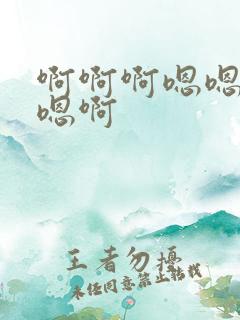 啊啊啊嗯嗯
嗯啊
王者勿擾
未经同意禁止转载